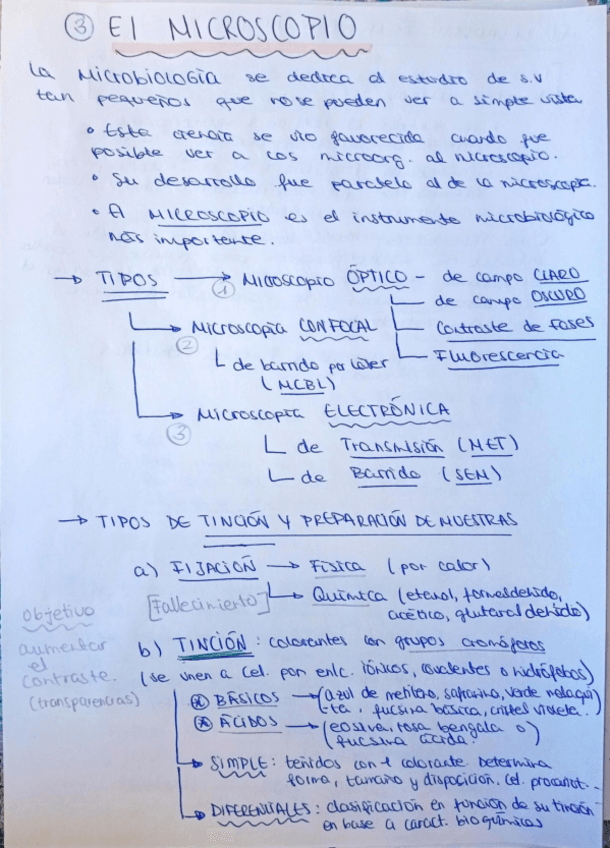 ③ El MICROSCOPIO
La Microbiología se dedica al estudio de s.v
tan pequeños que no se pueden ver a simple vista
• Esta ciencia se vio favorecida cuando fue
posible ver a los microorg. al microscopio.
• Su desarrollo fue paralelo al de la microscopía.
• El MICROSCOPIO es el instrumento microbiológico
más importante.
→ TIPOS → ① Microscopio ÓPTICO - de campo CLARO
de campo OSCURO
Contraste de fases
Fluorescencia
② Microscopía CONFOCAL
de barrido por láser
(MCBL)
③ Microscopía ELECTRÓNICA
de Transmisión (MET)
de Barrido (SEM)
→ TIPOS DE TINCIÓN Y PREPARACIÓN DE MUESTRAS
a) FIJACIÓN → Física (por calor)
[Fallecimiento] → Química (etanol, formaldehido,
acético, glutaraldehido)
Objetivo
aumentar
el
contraste.
(transparencias)
b) TINCIÓN: colorantes con grupos cromóforos
(se unen a cel. por enlc. iónicos, covalentes o hidrófobos)
BÁSICOS → (azul de metileno, safranina, verde malaqui
-ta, fucsina básica, cristal violeta.)
ÁCIDOS → (eosina, rosa bengala o)
(fucsina ácida.)
→ SIMPLE: teñidos con 1 colorante. Determina
forma, tamaño y disposición. Cel. procariot.
→ DIFERENCIALES: clasificación en función de su tinción
en base a caract. bioquímicas